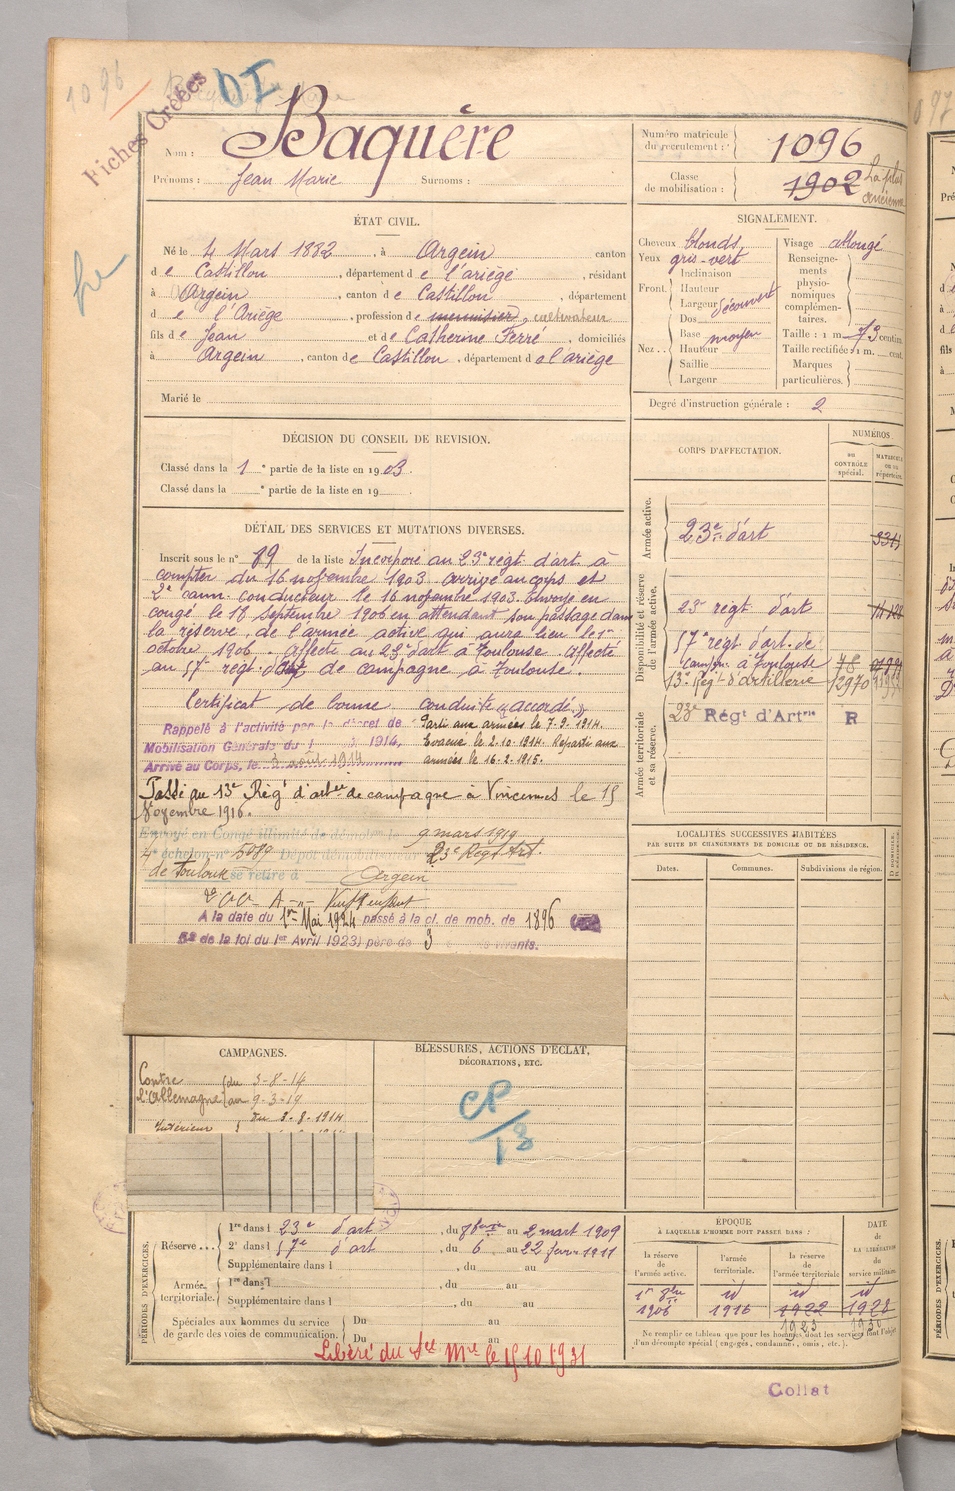 1096
Fiches Créées
DI
Nom : Baquère
Prénoms : Jean Marie Surnoms :
Numéro matricule du recrutement : 1096
Classe de mobilisation : 1902 La plus ancienne
ÉTAT CIVIL.
Né le 4 Mars 1882, à Argein canton
de Castillon, département de l'ariège, résidant
à Argein, canton de Castillon, département
de l'Ariège, profession de menuisier, cultivateur
fils de Jean et de Catherine Ferré, domiciliés
à Argein, canton de Castillon, département de l'ariège
Marié le
SIGNALEMENT.
Cheveux blonds
Yeux gris-vert
Front. Inclinaison
Hauteur
Largeur découvert
Nez. Dos
Base moyen
Hauteur
Saillie
Largeur
Visage allongé
Renseignements physionomiques complémentaires.
Taille : 1 m. 73 centim.
Taille rectifiée : 1 m. cent.
Marques particulières.
Degré d'instruction générale : 2
DÉCISION DU CONSEIL DE REVISION.
Classé dans la 1e partie de la liste en 1903
Classé dans la e partie de la liste en 19
DÉTAIL DES SERVICES ET MUTATIONS DIVERSES.
Inscrit sous le n° 89 de la liste Incorporé au 23e régt d'art à
compter du 16 novembre 1903 arrivé au corps et
2e cann. conducteur le 16 novembre 1903. Envoyé en
congé le 18 septembre 1906 en attendant son passage dans
la réserve de l'armée active qui aura lieu le 1er
octobre 1906. Affecté au 23e d'art à Toulouse. Affecté
au 57e régt d'art de campagne à Toulouse.
Certificat de bonne conduite "accordé"
Rappelé à l'activité par le décret de
Mobilisation Générale du 1 1914.
Arrivé au Corps, le 3 août 1914
Parti aux armées le 7.9.1914.
Evacué le 2.10.1914. Reparti aux
armées le 16.2.1915.
Passé au 13e Régt d'artie de campagne à Vincennes le 15
Novembre 1916.
Envoyé en Congé illimité de démob le 9 mars 1919
4e échelon n° 5089 Dépôt démobilisateur 23e Régt Art.
de Toulouse se retire à Argein
A la date du 1er Mai 1924 passé à la cl. de mob. de 1896
de la loi du 1er Avril 1923) père de 3 vivants.
CORPS D'AFFECTATION.
NUMÉROS
au CONTRÔLE spécial.
MATRICULE ou au répertoire.
Armée active.
23e d'art
Disponibilité et réserve de l'armée active.
23e régt d'art
57e régt d'art. de
camp. à Toulouse 78
13e Régt d'Artillerie 12970
Armée territoriale et sa réserve.
23e Régt d'Artrie R
LOCALITÉS SUCCESSIVES HABITÉES
PAR SUITE DE CHANGEMENTS DE DOMICILE OU DE RÉSIDENCE.
Dates. Communes. Subdivisions de région.
CAMPAGNES.
Contre l'Allemagne du 3-8-14
au 9-3-19
Intérieur du 3-8-1914
BLESSURES, ACTIONS D'ÉCLAT,
DÉCORATIONS, ETC.
CP/18
PÉRIODES D'EXERCICES.
Réserve... 1re dans l 23e d'art, du au 2 mart 1909
2e dans l 57e d'art, du 6 au 22 1911
Supplémentaire dans l , du au
Armée territoriale. 1re dans l , du au
Supplémentaire dans l , du au
Spéciales aux hommes du service de garde des voies de communication. Du au
Du au
Libéré du Set Mre le 15 10 1931
ÉPOQUE
À LAQUELLE L'HOMME DOIT PASSER DANS :
la réserve de l'armée active.
l'armée territoriale.
la réserve de l'armée territoriale
DATE de LA LIBÉRATION du service militaire.
1er 8bre id id id
1906 1916 1922 1928
1923 1930
Ne remplir ce tableau que pour les hommes dont les services font l'objet
d'un décompte spécial (engagés, condamnés, omis, etc.).
Collat